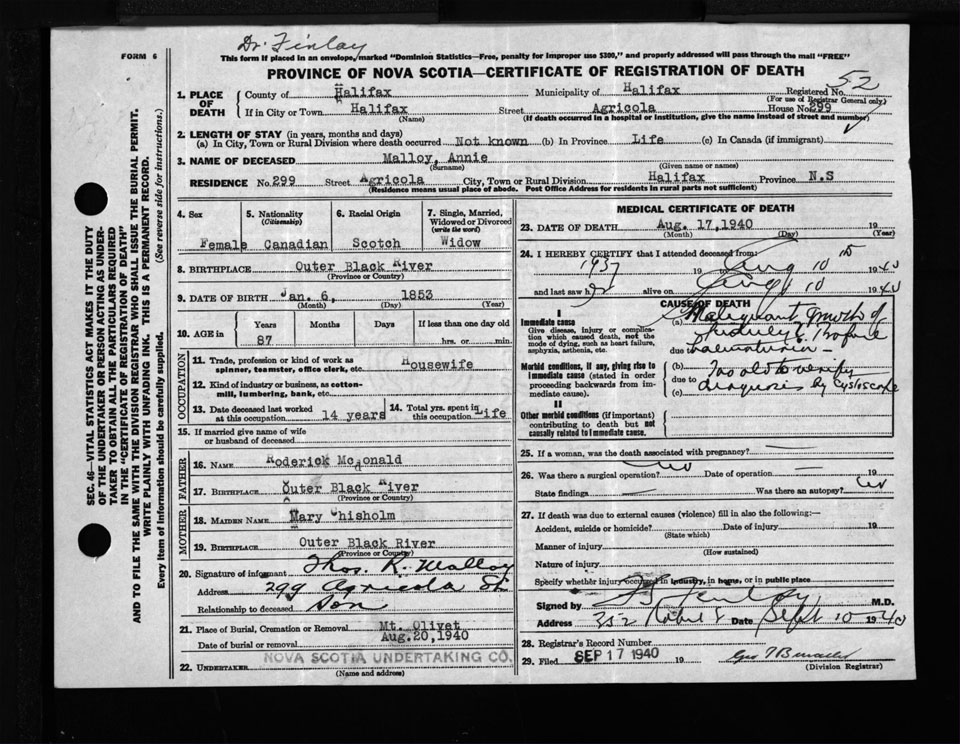 Dr. Finlay
FORM 6
This form if placed in an envelope, marked "Dominion Statistics—Free, penalty for improper use $300," and properly addressed will pass through the mail "FREE"
PROVINCE OF NOVA SCOTIA—CERTIFICATE OF REGISTRATION OF DEATH
SEC. 46—VITAL STATISTICS ACT MAKES IT THE DUTY
OF THE UNDERTAKER OR PERSON ACTING AS UNDER-
TAKER TO OBTAIN ALL THE PARTICULARS REQUIRED
IN THE "CERTIFICATE OF REGISTRATION OF DEATH"
AND TO FILE THE SAME WITH THE DIVISION REGISTRAR WHO SHALL ISSUE THE BURIAL PERMIT.
WRITE PLAINLY WITH UNFADING INK. THIS IS A PERMANENT RECORD.
Every item of Information should be carefully supplied. (See reverse side for instructions.)
1. PLACE OF DEATH
County of Halifax Municipality of Halifax Registered No. 52
(For use of Registrar General only)
If in City or Town Halifax Street Agricola House No. 299
(Name) (If death occurred in a hospital or institution, give the name instead of street and number)
2. LENGTH OF STAY (in years, months and days)
(a) In City, Town or Rural Division where death occurred Not known (b) In Province Life (c) In Canada (if immigrant)
3. NAME OF DECEASED Malloy, Annie
(Surname) (Given name or names)
RESIDENCE No. 299 Street Agricola City, Town or Rural Division Halifax Province N.S
(Residence means usual place of abode. Post Office Address for residents in rural parts not sufficient)
4. Sex 5. Nationality (Citizenship) 6. Racial Origin 7. Single, Married, Widowed or Divorced (write the word)
Female Canadian Scotch Widow
8. BIRTHPLACE Outer Black River
(Province or Country)
9. DATE OF BIRTH Jan. 6, 1853
(Month) (Day) (Year)
10. AGE in Years Months Days If less than one day old
87 hrs. or min.
OCCUPATION
11. Trade, profession or kind of work as spinner, teamster, office clerk, etc. Housewife
12. Kind of industry or business, as cotton-mill, lumbering, bank, etc.
13. Date deceased last worked at this occupation 14 years
14. Total yrs. spent in this occupation Life
15. If married give name of wife or husband of deceased
FATHER
16. NAME Roderick McDonald
17. BIRTHPLACE Outer Black River
(Province or Country)
MOTHER
18. MAIDEN NAME Mary Chisholm
19. BIRTHPLACE Outer Black River
(Province or Country)
20. Signature of informant Thos. R. Malloy
Address 299 Agricola St
Relationship to deceased Son
21. Place of Burial, Cremation or Removal Mt. Olivet
Date of burial or removal Aug. 20, 1940
22. UNDERTAKER NOVA SCOTIA UNDERTAKING CO.
(Name and address)
MEDICAL CERTIFICATE OF DEATH
23. DATE OF DEATH Aug. 17, 1940 19
(Month) (Day) (Year)
24. I HEREBY CERTIFY that I attended deceased from:
1937 19 to Aug 10 1940
and last saw her alive on Aug 10 1940
CAUSE OF DEATH
I
Immediate cause
Give disease, injury or complication which caused death, not the mode of dying, such as heart failure, asphyxia, asthenia, etc.
(a) Malignant growth of
kidney & Profuse
due to haematuria
Morbid conditions, if any, giving rise to immediate cause (stated in order proceeding backwards from immediate cause).
(b) Too old to verify
due to
(c) diagnosis by Cystoscope
II
Other morbid conditions (if important) contributing to death but not causally related to immediate cause.
25. If a woman, was the death associated with pregnancy? —
26. Was there a surgical operation? no Date of operation — 19
State findings — Was there an autopsy? no
27. If death was due to external causes (violence) fill in also the following:—
Accident, suicide or homicide? Date of injury 19
(State which)
Manner of injury
(How sustained)
Nature of injury
Specify whether injury occurred in industry, in home, or in public place
Signed by Finlay M.D.
Address 352 Robie St Date Sept 10 1940
28. Registrar's Record Number
29. Filed SEP 17 1940 19
(Division Registrar)